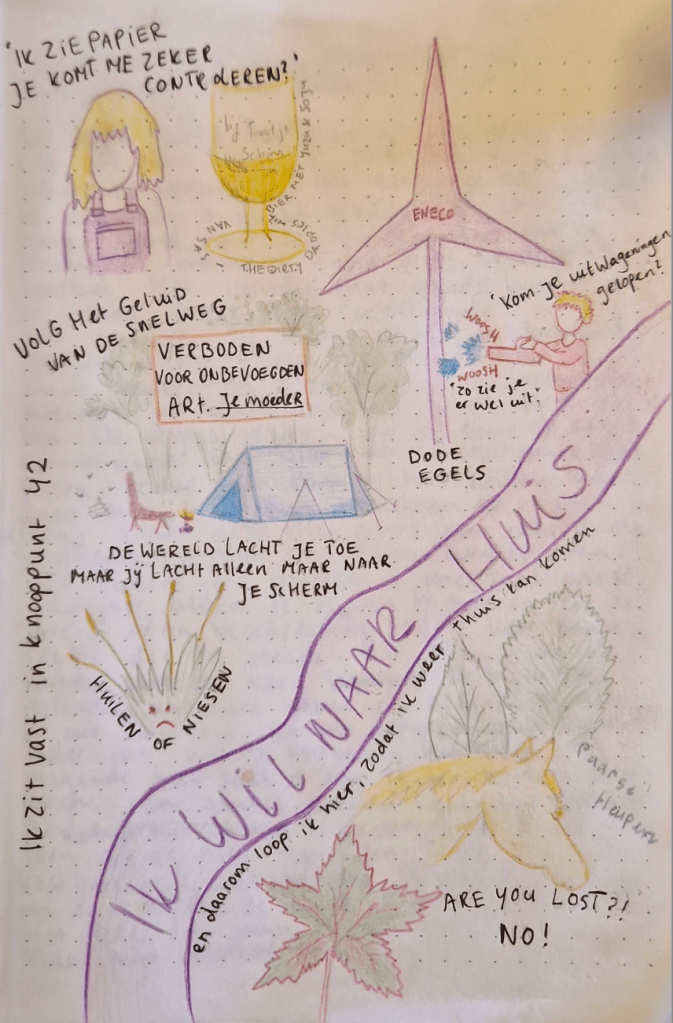 'IK ZIE PAPIER
JE KOMT ME ZEKER
CONTROLEREN?'
bij Trintje
BIER MET YUZU & SOJA
VAN SAS
THE DIRTY
ENECO
'Kom je uit Wageningen
gelopen?'
WOOSH
WOOSH
'Zo zie je
er wel uit.'
VOLG HET GELUID
VAN DE SNELWEG
VERBODEN
VOOR ONBEVOEGDEN
ART. Je moeder
DODE
EGELS
DE WERELD LACHT JE TOE
MAAR JIJ LACHT ALLEEN MAAR NAAR
JE SCHERM
Ik zit vast in knooppunt 42
HUILEN OF NIESEN
IK WIL NAAR HUIS
en daarom loop ik hier, zodat ik weer thuis kan komen
Paarse
ARE YOU LOST?!
NO!